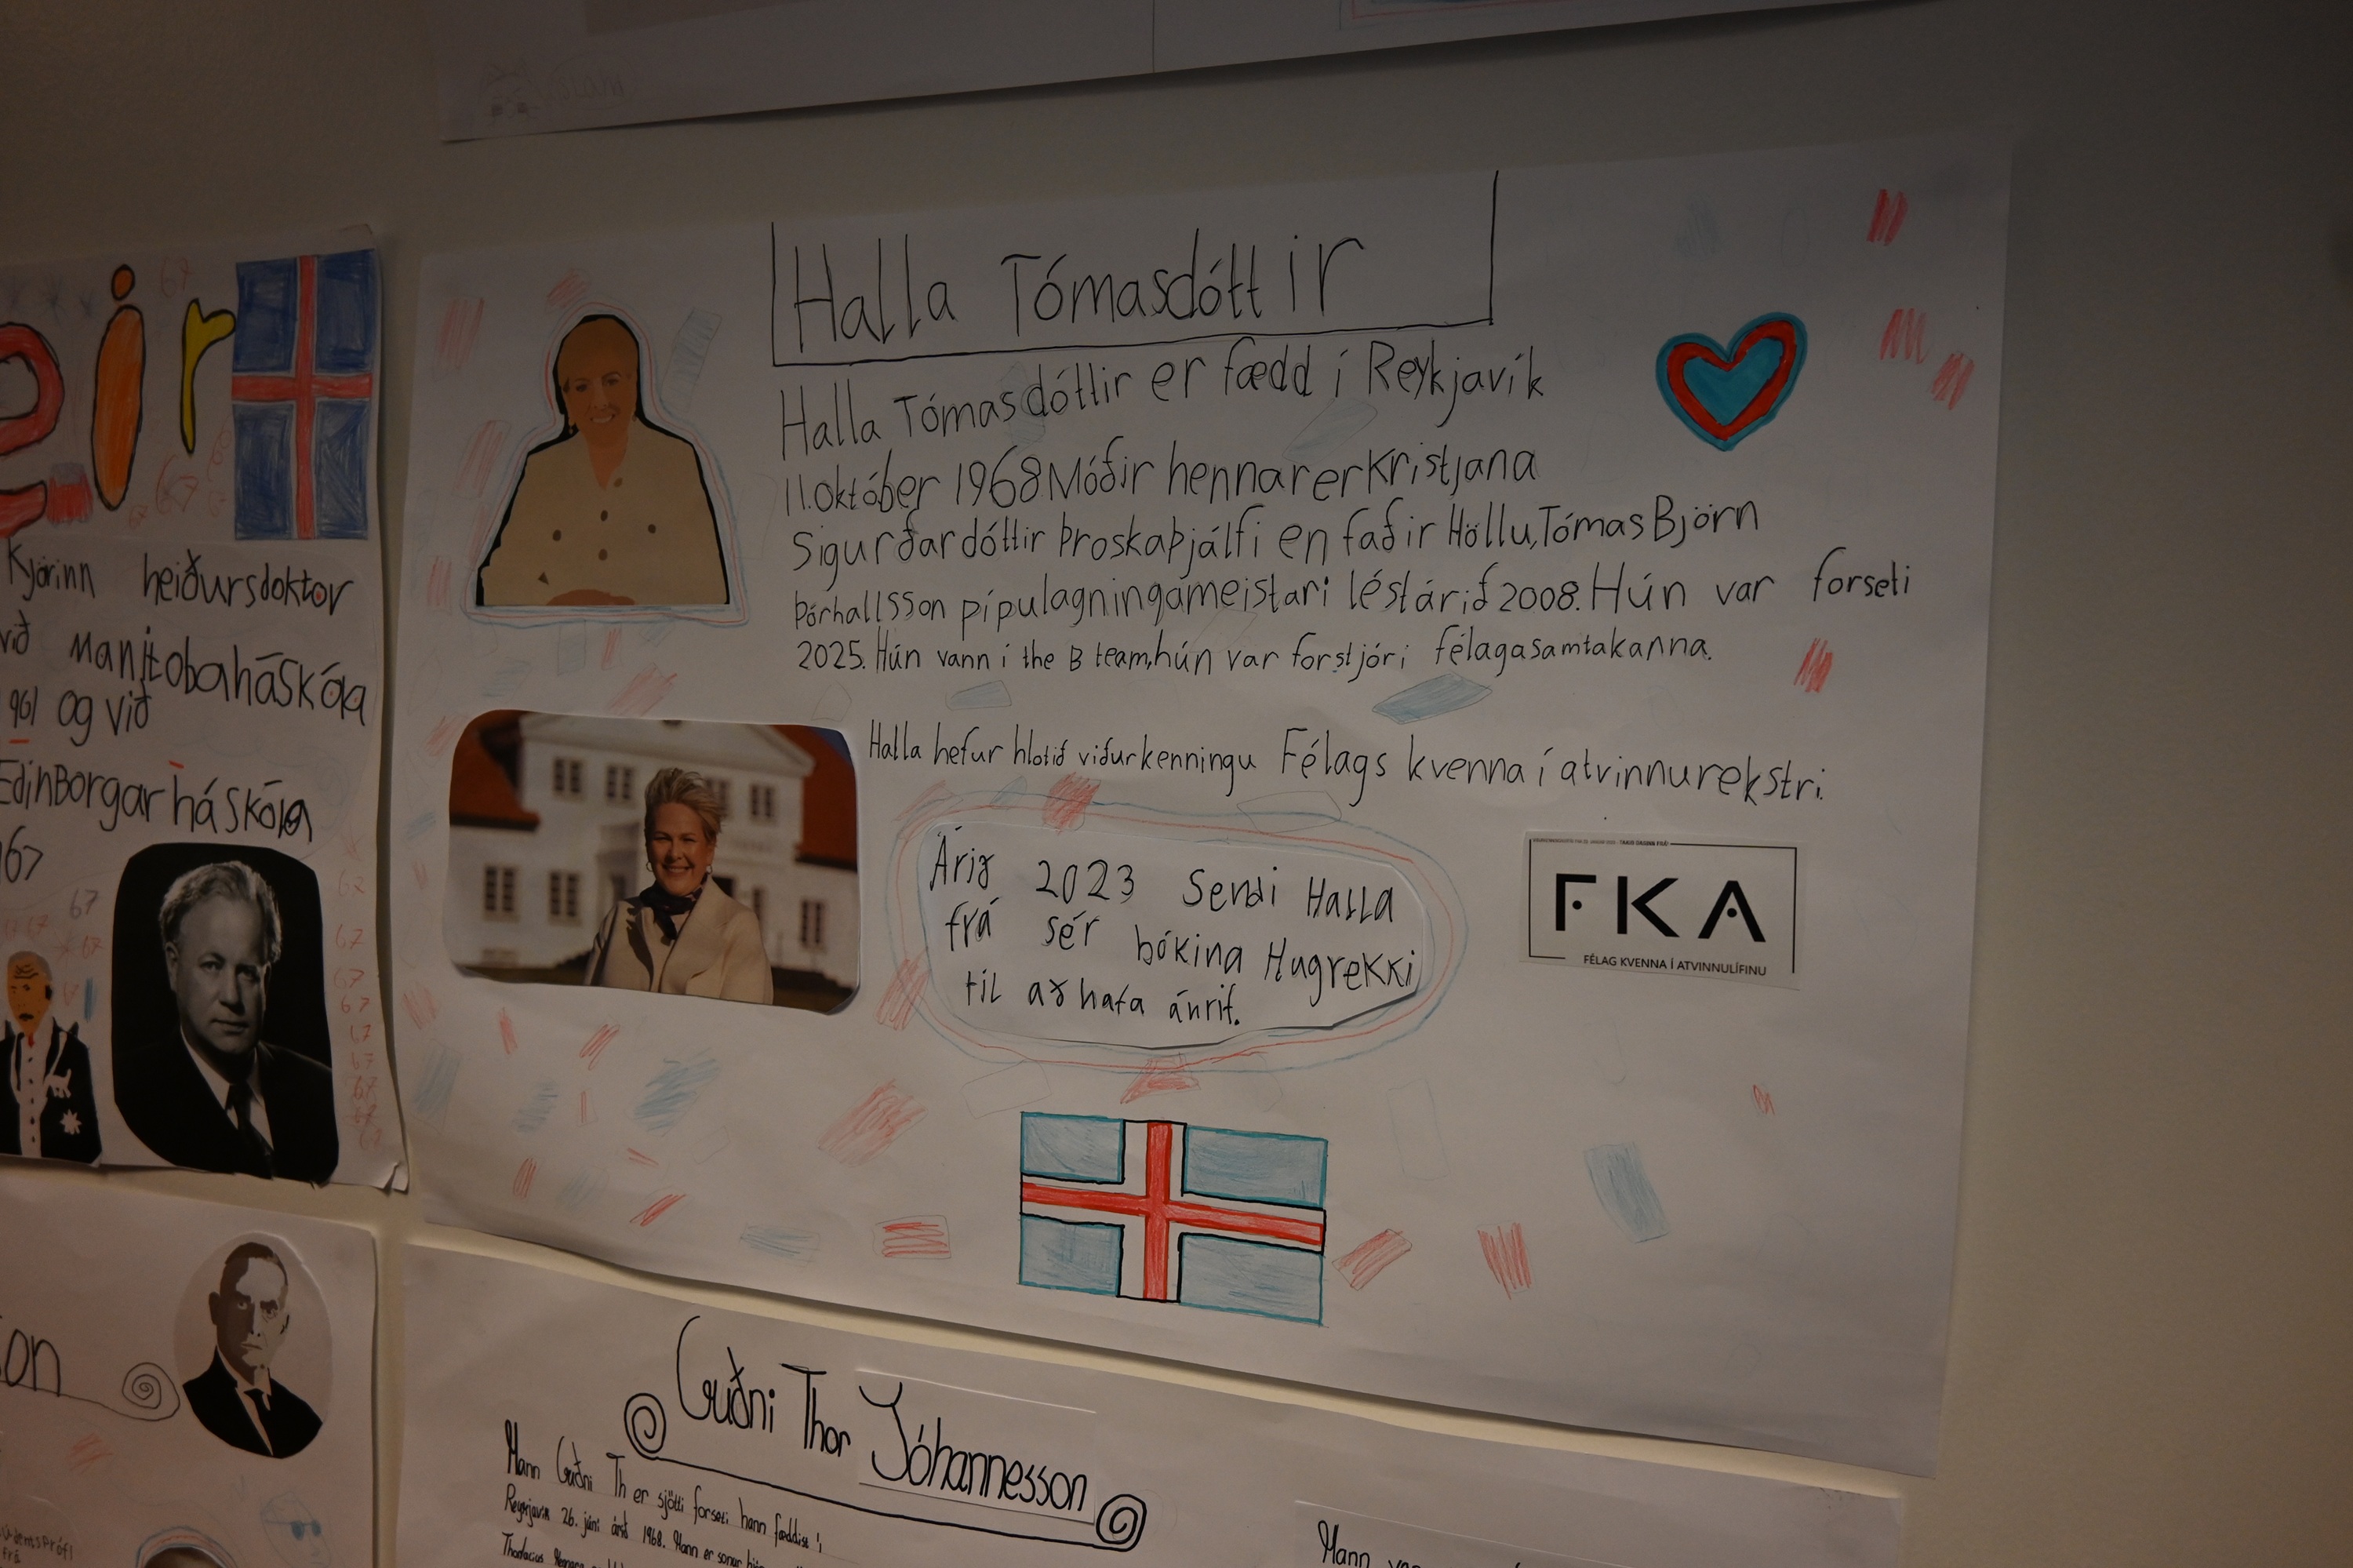 Halla Tómasdóttir
Halla Tómasdóttir er fædd í Reykjavík
11.október 1968 Móðir hennar er Kristjana
Sigurðardóttir Þroskaþjálfi en faðir Höllu, Tómas Björn
Þórhallsson pípulagningameistari lést árið 2008. Hún var forseti
2025. Hún vann í the B team, hún var forstjóri félagasamtakanna.
Halla hefur hlotið viðurkenningu Félags kvenna í atvinnurekstri.
Árið 2023 Sendi Halla
frá sér bókina Hugrekki
til að hafa áhrif.
FKA
FÉLAG KVENNA Í ATVINNULÍFINU
eir
Kjörinn heiðursdoktor
við Manitobaháskóla
1961 og við
EdinBorgarháskóla
67
67
67
67
67
67
67
67
67
67
on
Guðni Thor Jóhannesson
Mann Guðni Th er sjötti forseti hann fæddist í
Reykjavík 26. júní árið 1968. Hann er sonur
Thorlacius
Mann
frá